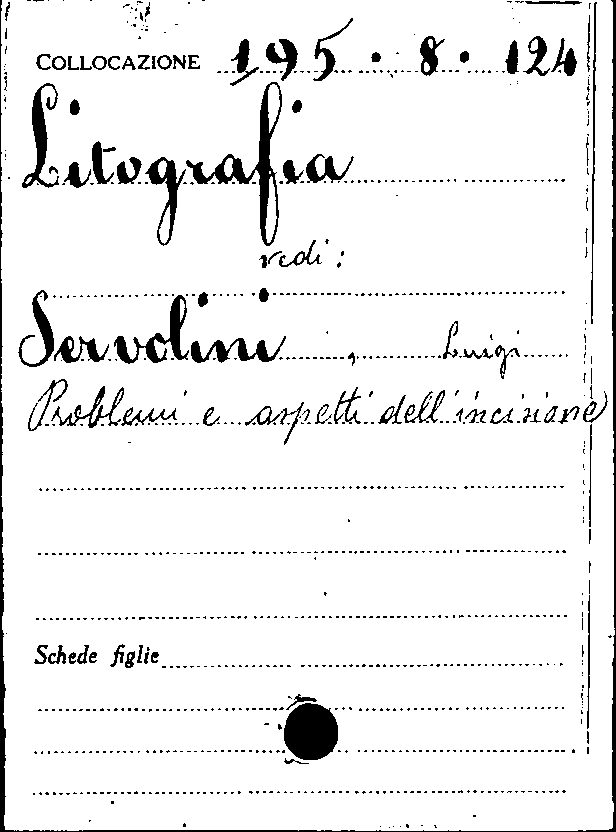 COLLOCAZIONE 195 . 8 . 124
Litografia
vedi :
Servolini , Luigi
Problemi e aspetti dell'incisione
Schede figlie